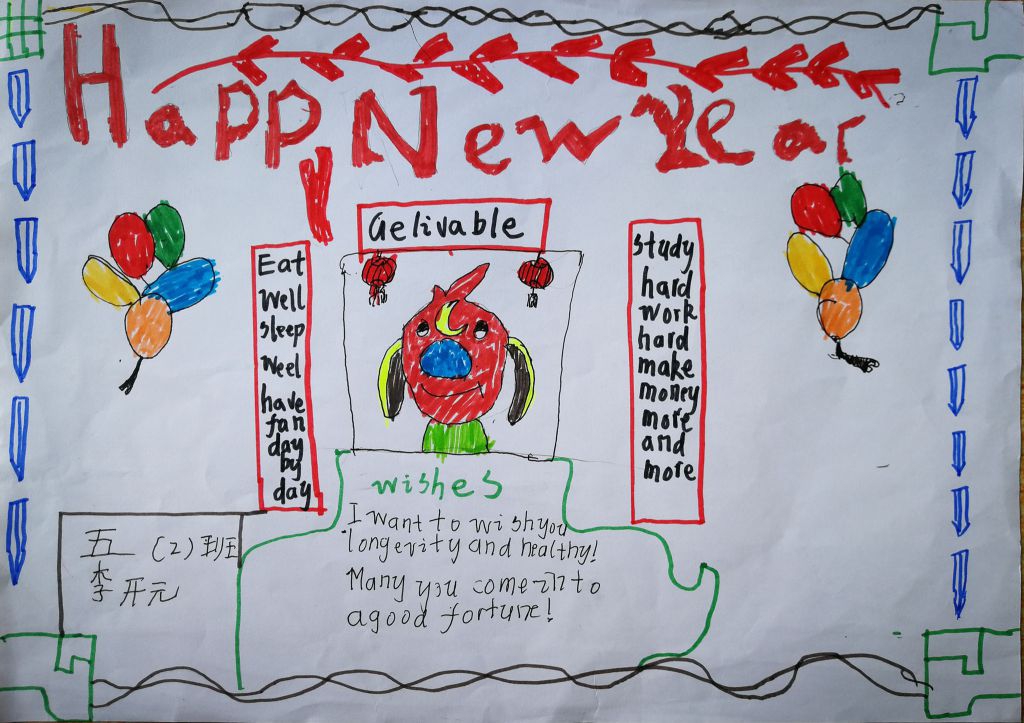 Happy New Year
Gelivable
Eat
well
sleep
weel
have
fan
day
by
day
study
hard
work
hard
make
money
more
and
more
wishes
I want to wish you
longevity and healthy!
Many you come in to
a good fortune!
五（2）班
李开元